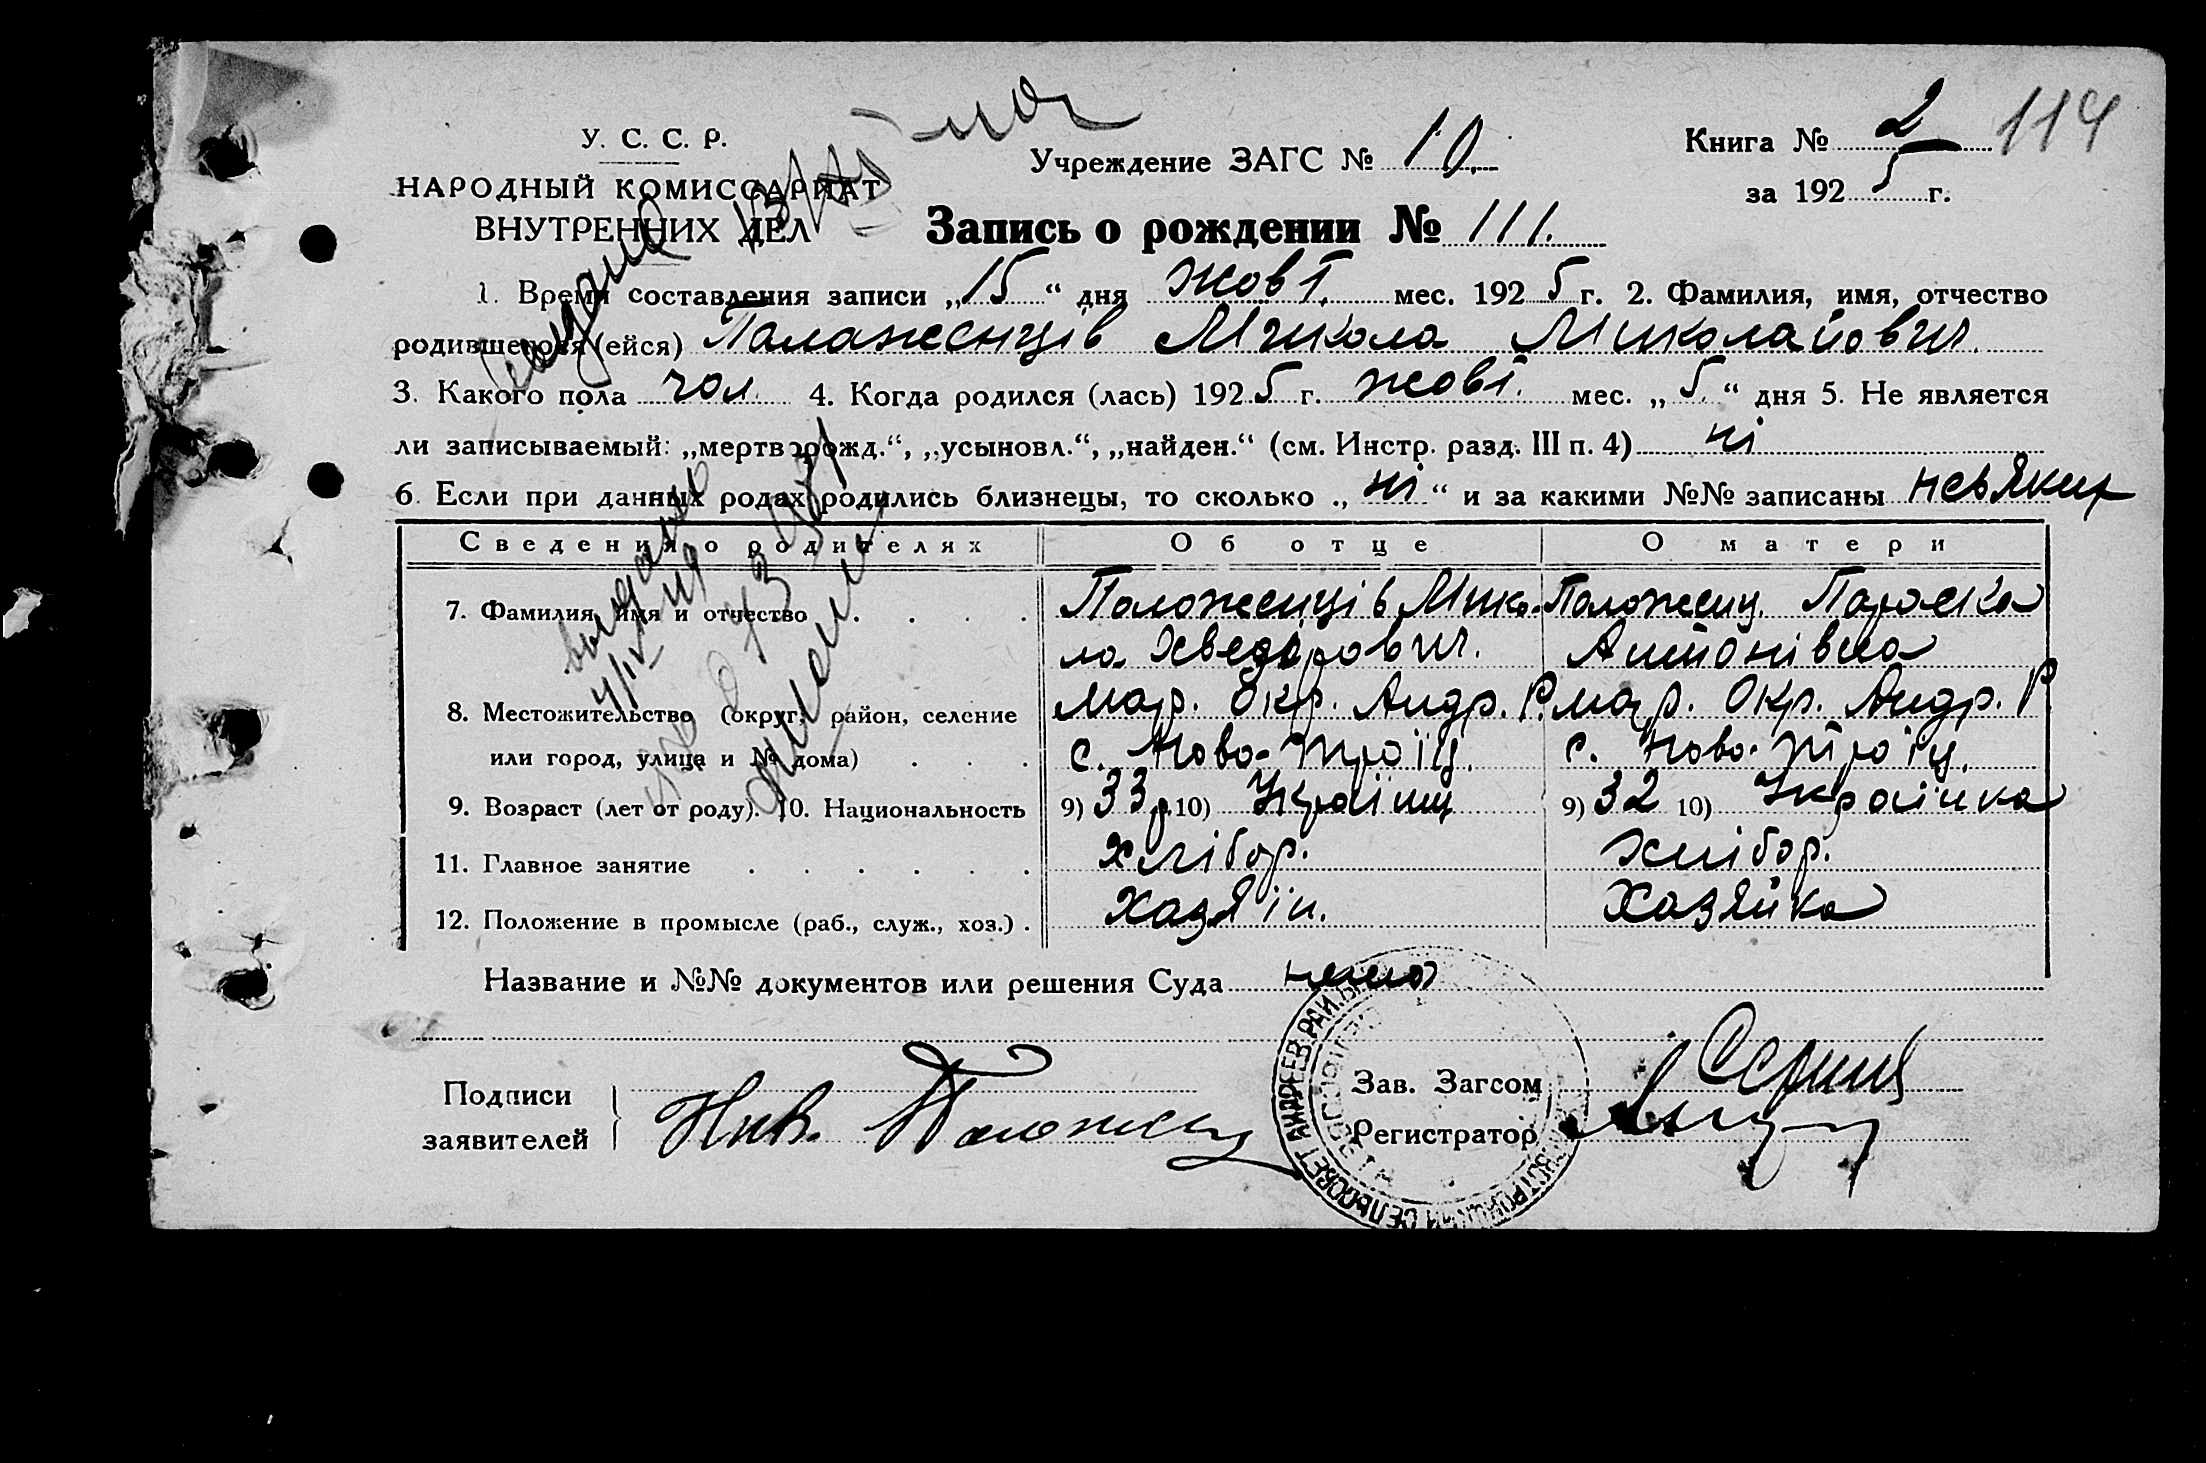 У. С. С. Р.
НАРОДНЫЙ КОМИССАРИАТ
ВНУТРЕННИХ ДЕЛ
Учреждение ЗАГС № 10.
Книга № 2 114
за 1925 г.
Запись о рождении № 111.
1. Время составления записи „15“ дня Жовт. мес. 1925 г. 2. Фамилия, имя, отчество
родившегося (ейся) Паложенців Микола Миколайович.
3. Какого пола чол. 4. Когда родился (лась) 1925 г. жовт. мес. „5.“ дня 5. Не является
ли записываемый: „мертворожд.“, „усыновл.“, „найден.“ (см. Инстр. разд. III п. 4) ні
6. Если при данных родах родились близнецы, то сколько „ні“ и за какими №№ записаны невяких
Сведения о родителях Об отце О матери
7. Фамилия, имя и отчество . . . . Положенців Мико- Положенц. Параска
ла Хведорович. Антонівна
8. Местожительство (округ, район, селение Мар. Окр. Андр. Р. Мар. Окр. Андр. Р
или город, улица и № дома) . . . с. Ново-Троїц. с. Ново-Троїц.
9. Возраст (лет от роду). 10. Национальность 9) 33 р. 10) Українц 9) 32 10) Українка
11. Главное занятие . . . . . . Хлібор. Хлібор.
12. Положение в промысле (раб., служ., хоз.) . Хазяїн. Хазяйка
Название и №№ документов или решения Суда нема
Подписи
заявителей
Ник. Положенц
Зав. Загсом
Регистратор
АНДРЕЕВ. РАЙ.
СЕЛЬСОВЕТ
выдано